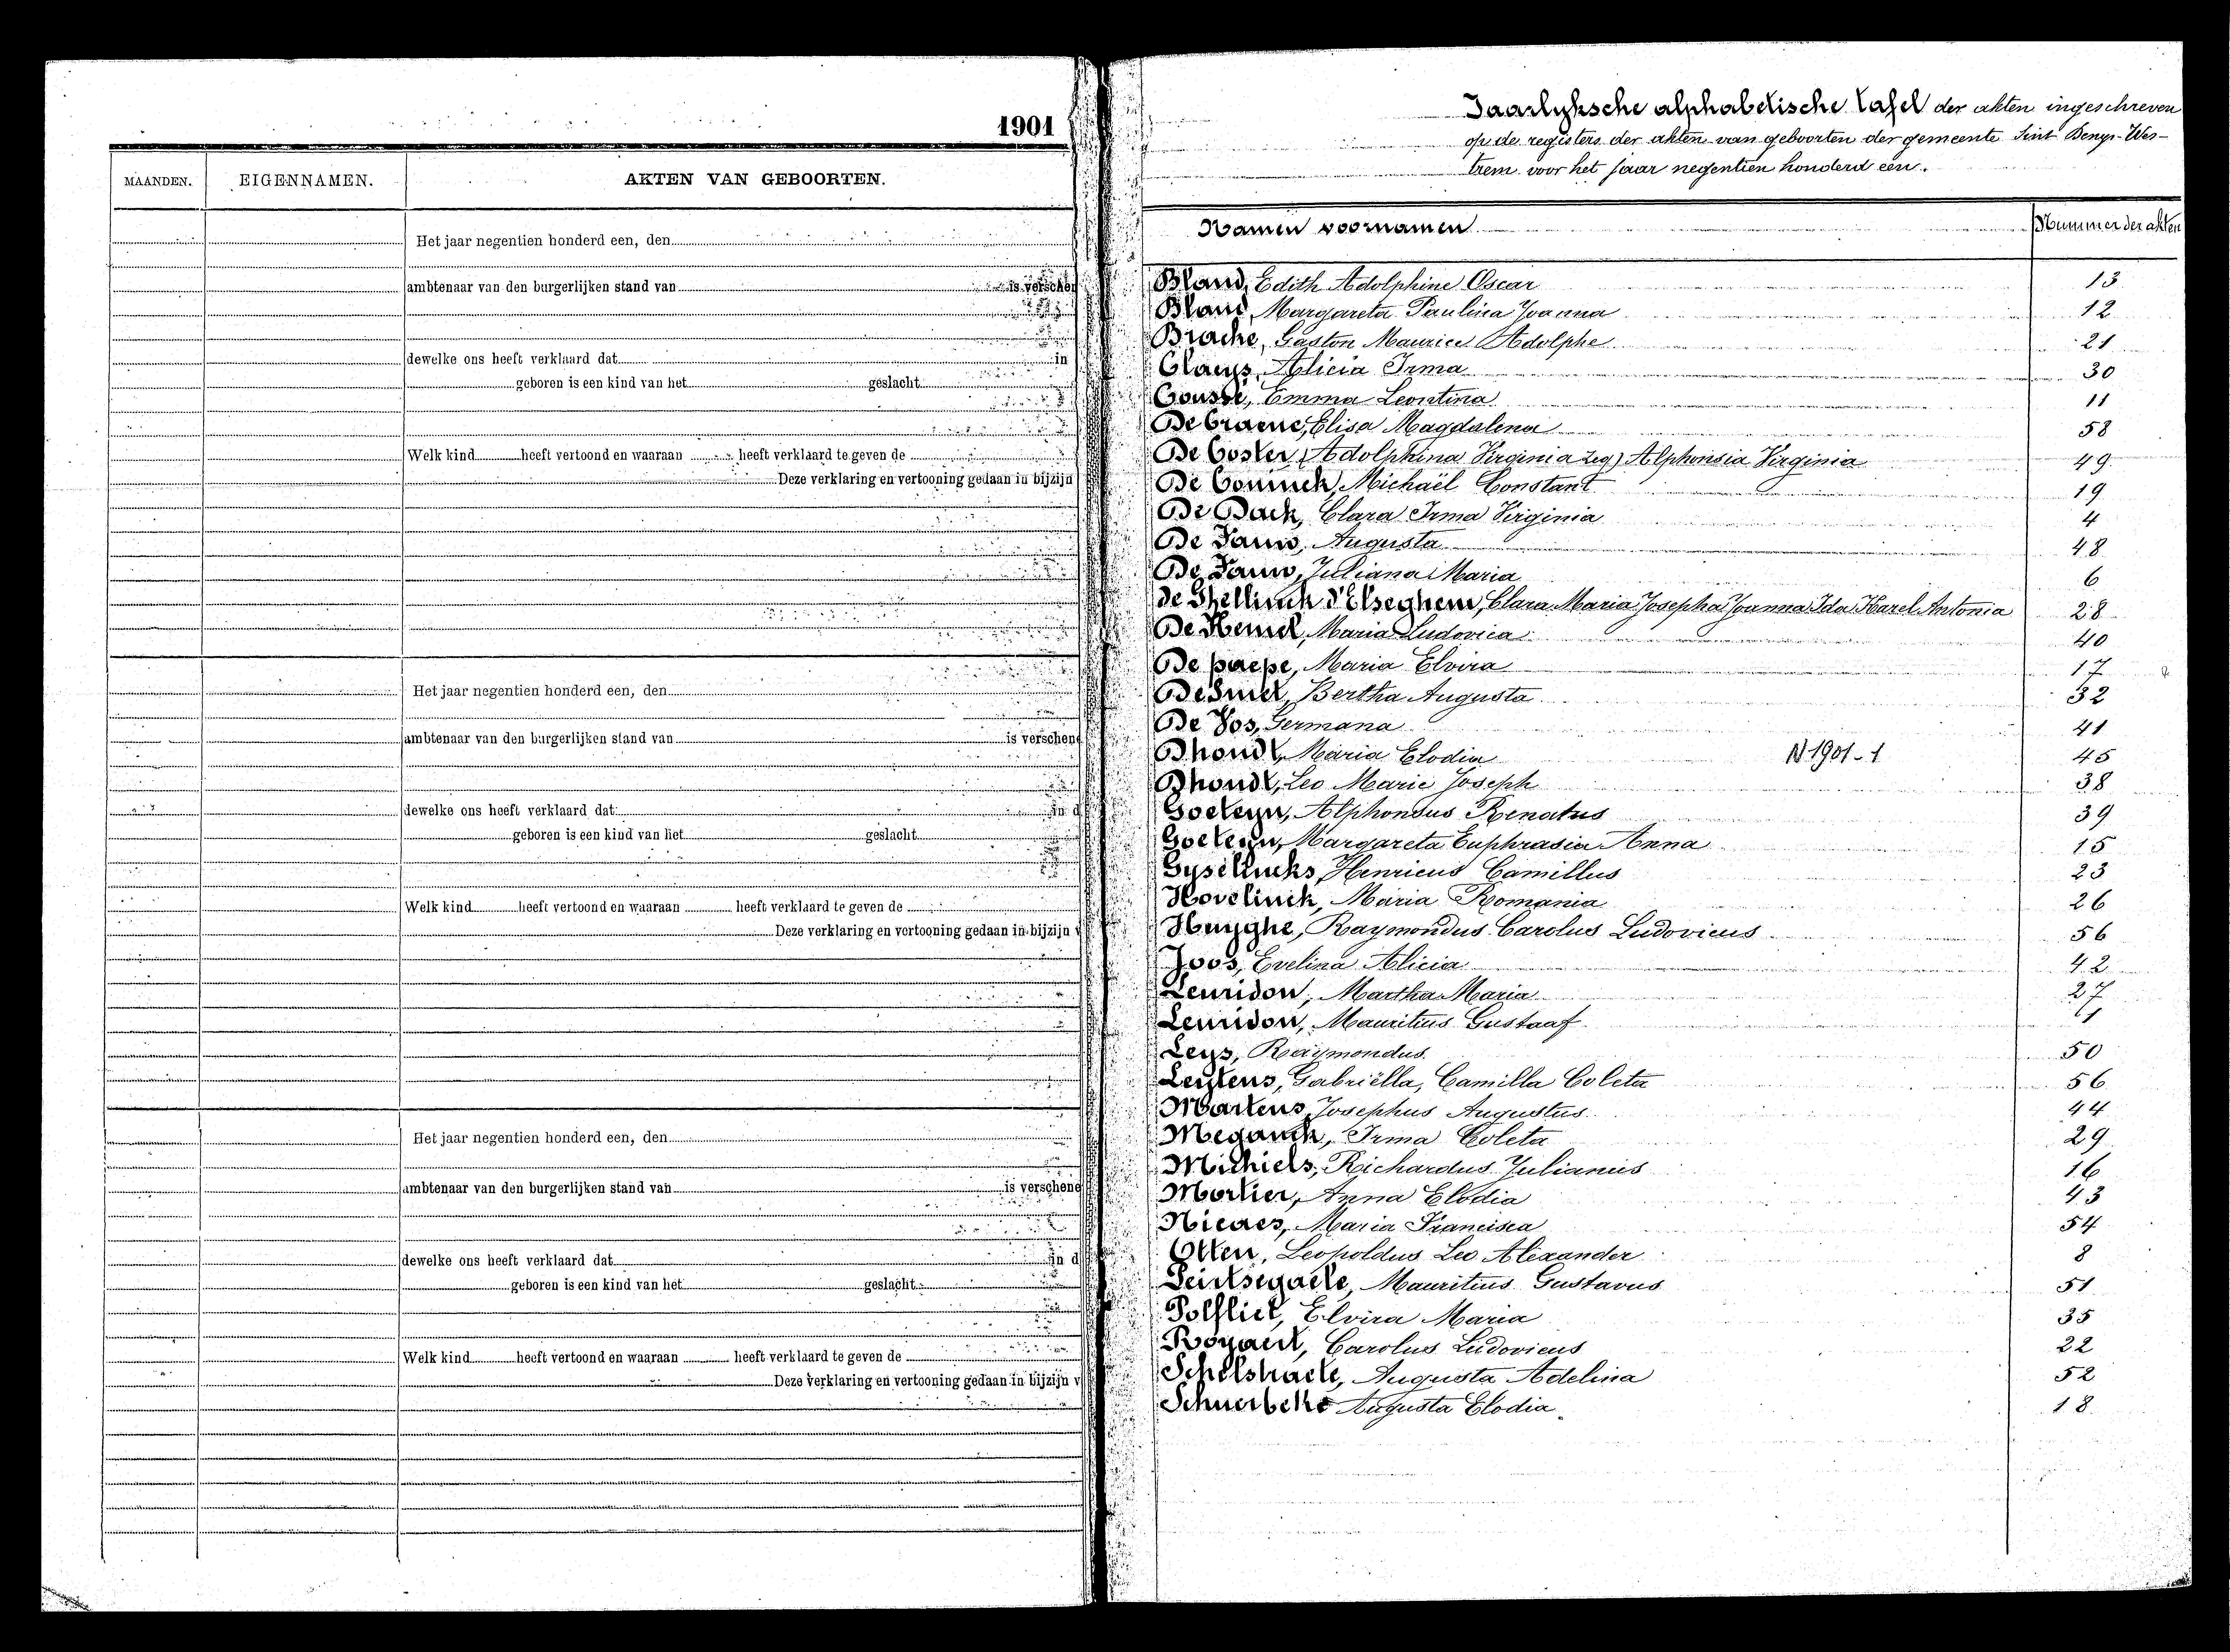 1901
MAANDEN. EIGENNAMEN. AKTEN VAN GEBOORTEN.
Het jaar negentien honderd een, den
ambtenaar van den burgerlijken stand van is verschen
dewelke ons heeft verklaard dat in
geboren is een kind van het geslacht
Welk kind heeft vertoond en waaraan heeft verklaard te geven de
Deze verklaring en vertooning gedaan in bijzijn
Het jaar negentien honderd een, den
ambtenaar van den burgerlijken stand van is verschene
dewelke ons heeft verklaard dat in d
geboren is een kind van het geslacht
Welk kind heeft vertoond en waaraan heeft verklaard te geven de
Deze verklaring en vertooning gedaan in bijzijn v
Het jaar negentien honderd een, den
ambtenaar van den burgerlijken stand van is verschene
dewelke ons heeft verklaard dat in d
geboren is een kind van het geslacht
Welk kind heeft vertoond en waaraan heeft verklaard te geven de
Deze verklaring en vertooning gedaan in bijzijn v
Jaarlyksche alphabetische tafel der akten ingeschreven
op de registers der akten van geboorten der gemeente Sint Denys-Wes-
trem voor het jaar negentien honderd een.
Namen voornamen Nummer der akten
Bland, Edith Adolphine Oscar 13
Bland, Margareta Paulina Joanna 12
Brache, Gaston Maurice Adolphe 21
Claeys, Alicia Irma 30
Cousse, Emma Leontina 11
De Craene, Elisa Magdalena 58
De Coster, (Adolphina Virginia zeg) Alphonsia Virginia 49
De Coninck, Michaël Constant 19
De Dack, Clara Irma Virginia 4
De Fauw, Augusta 48
De Fauw, Juliana Maria 6
de Ghellinck d'Elseghem, Clara Maria Josepha Joanna Ida Karel Antonia 28
De Hemel, Maria Ludovica 40
De paepe, Maria Elvira 17
Desmet, Bertha Augusta 32
De Vos, Germana 41
Dhondt, Maria Elodia N 1901-1 45
Dhondt, Leo Marie Joseph 38
Goeteyn, Alphonsus Renatus 39
Goeteyn, Margareta Euphrasia Anna 15
Gyselincks, Henricus Camillus 23
Hovelinck, Maria Romania 26
Huyghe, Raymondus Carolus Ludovicus 56
Joos, Evelina Alicia 42
Leuridon, Martha Maria 27
Leuridon, Mauritius Gustaaf
Leys, Raymondus 50
Leytens, Gabriëlla, Camilla Coleta 56
Martens, Josephus Augustus 44
Meganck, Irma Coleta 29
Michiels, Richardus Julianus 16
Mortier, Anna Elodia 43
Nicaes, Maria Francisca 54
Otten, Leopoldus Leo Alexander 8
Peirtsegaele, Mauritius Gustavus 51
Polfliet, Elvira Maria 35
Royaert, Carolus Ludovicus 22
Schelstraete, Augusta Adelina 52
Schuerbeke Augusta Elodia 18